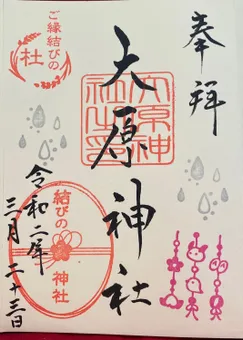 奉拝
大原神社
大原神社之印
ご縁結びの
杜
結びの
神社
令和二年
三月二十三日